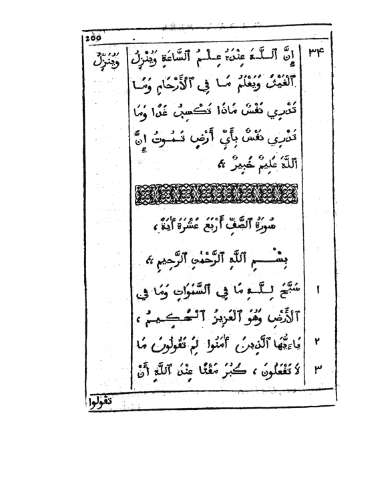 ٢٥٥
٣٤ إِنَّ اللَّهَ عِنْدَهُ عِلْمُ السَّاعَةِ وَيُنْزِلُ وَيُنَزِّلُ
الْغَيْثَ وَيَعْلَمُ مَا فِي الْأَرْحَامِ وَمَا
تَدْرِي نَفْسٌ مَاذَا تَكْسِبُ غَدًا وَمَا
تَدْرِي نَفْسٌ بِأَيِّ أَرْضٍ تَمُوتُ إِنَّ
اللَّهَ عَلِيمٌ خَبِيرٌ
سُورَةُ الصَّفِّ أَرْبَعَ عَشْرَةَ أَيَةً
بِسْمِ اللَّهِ الرَّحْمٰنِ الرَّحِيمِ
١ سَبَّحَ لِلَّهِ مَا فِي السَّمٰوَاتِ وَمَا فِي
الْأَرْضِ وَهُوَ الْعَزِيزُ الْحَكِيمُ ،
٢ يٰأَيُّهَا الَّذِينَ أٰمَنُوا لِمَ تَقُولُونَ مَا
٣ لَا تَفْعَلُونَ ، كَبُرَ مَقْتًا عِنْدَ اللَّهِ أَنْ
تقولوا